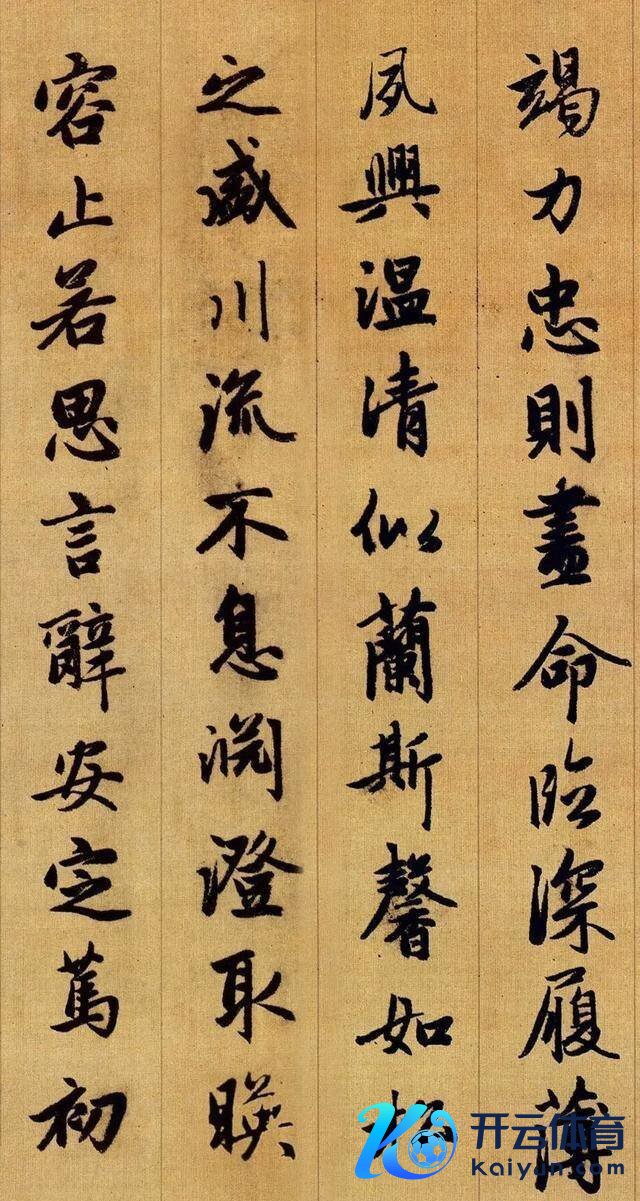 竭力忠則盡命臨深履薄
夙興温清似蘭斯馨如松
之盛川流不息渊澄取暎
容止若思言辭安定篤初
开云体育
kaiyun.com